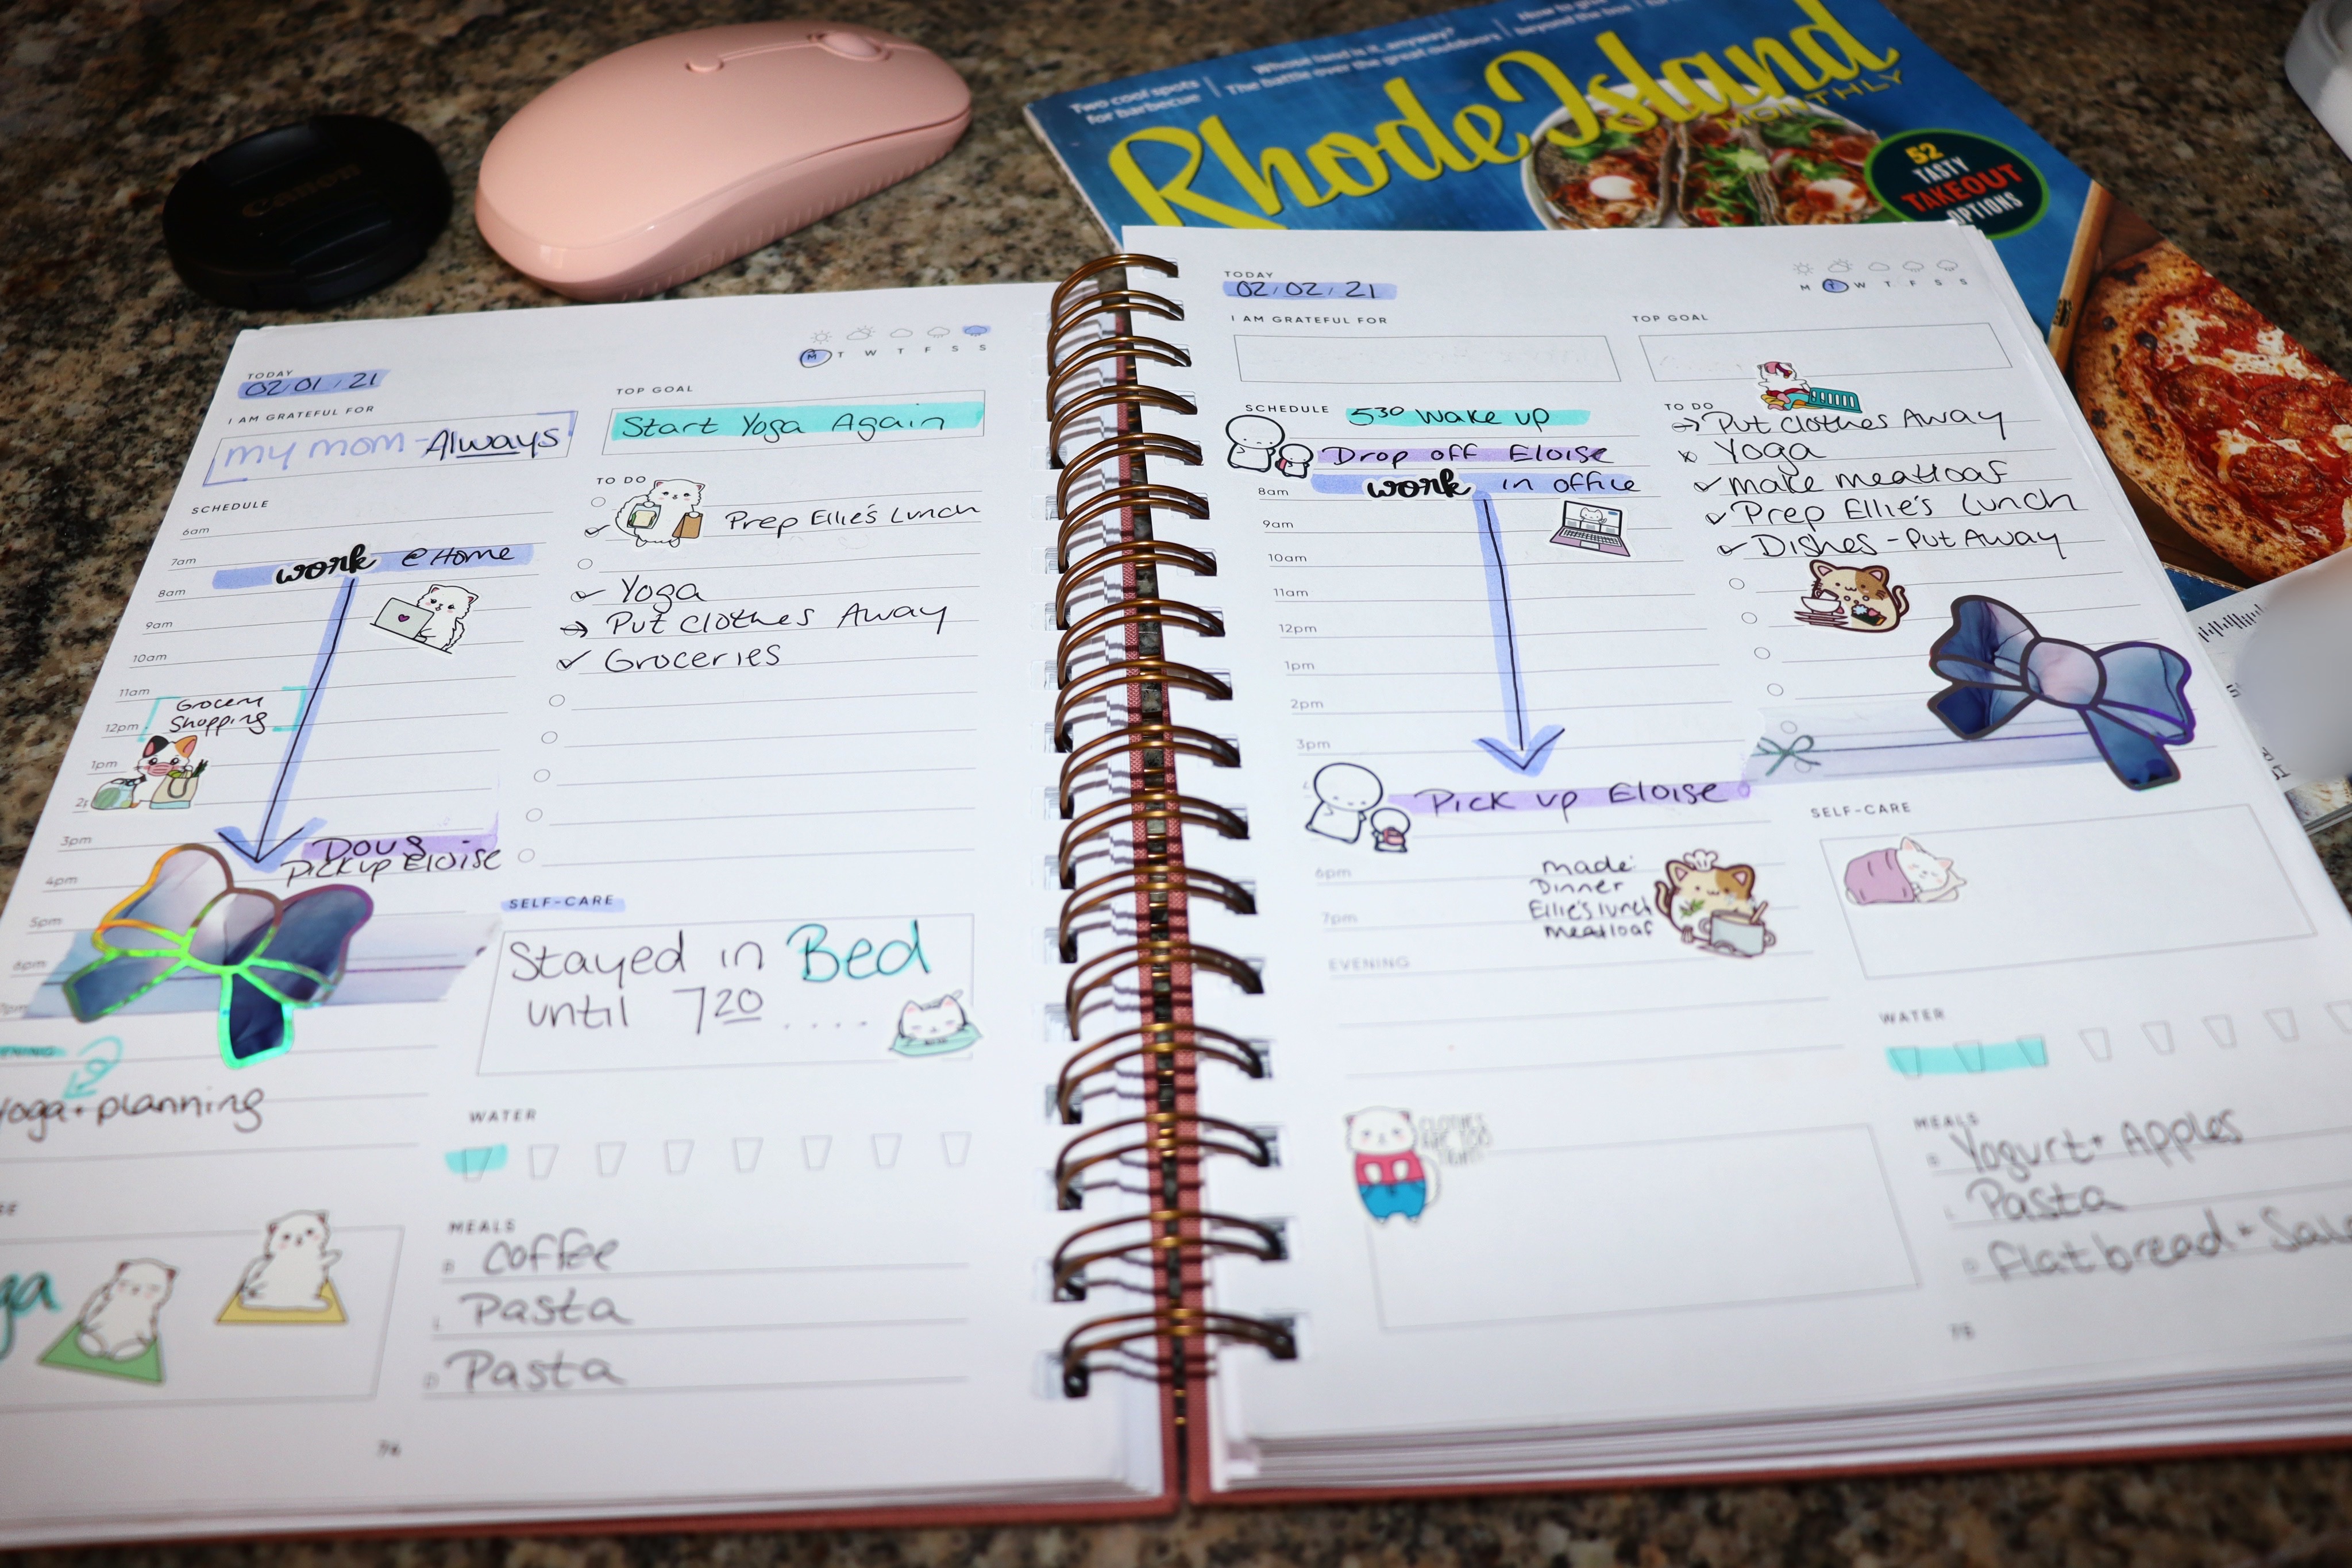 Canon
Two cool spots
for barbecue
Whose land is it, anyway?
The battle over the great outdoors
beyond the box
Rhode Island
MONTHLY
52
TASTY
TAKEOUT
OPTIONS
TODAY
02/01/21
M T W T F S S
I AM GRATEFUL FOR
my mom - Always
TOP GOAL
Start Yoga Again
SCHEDULE
6am
7am
work @ Home
8am
9am
10am
11am
Grocery
Shopping
12pm
1pm
3pm
Doug
Pick up Eloise
4pm
5pm
6pm
Yoga + planning
TO DO
Prep Ellie's Lunch
Yoga
Put clothes Away
Groceries
SELF-CARE
Stayed in Bed
until 7 20 ....
WATER
MEALS
B Coffee
L Pasta
D Pasta
74
TODAY
02/02/21
M T W T F S S
I AM GRATEFUL FOR
TOP GOAL
SCHEDULE
530 Wake up
Drop off Eloise
work in office
8am
9am
10am
11am
12pm
1pm
2pm
3pm
Pick up Eloise
6pm
7pm
made:
Dinner
Ellie's lunch
meatloaf
EVENING
TO DO
Put clothes Away
Yoga
make meatloaf
Prep Ellie's Lunch
Dishes - Put Away
SELF-CARE
WATER
CLOTHES
ARE TOO
TIGHT
MEALS
B Yogurt + Apples
L Pasta
D Flatbread +
75